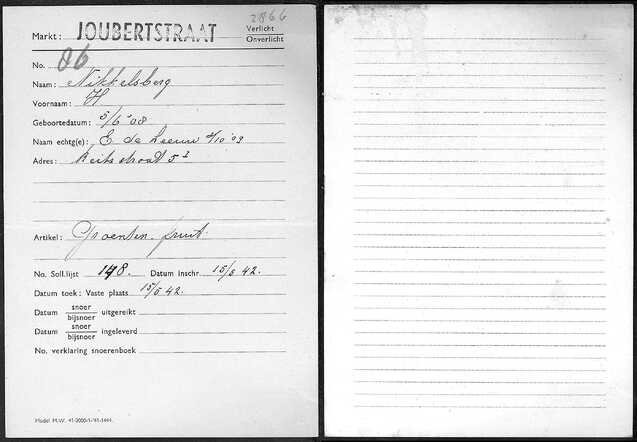 2866
Markt: JOUBERTSTRAAT Verlicht
Onverlicht
No. 06
Naam: Nikkelsberg
Voornaam: H
Geboortedatum: 5/6 '08
Naam echtg(e): E de Leeuw 4/10 '09
Adres: straat 5
Artikel: Groenten fruit.
No. Soll.lijst 148. Datum inschr. 15/5 42.
Datum toek: Vaste plaats 15/5 42.
Datum snoer/bijsnoer uitgereikt
Datum snoer/bijsnoer ingeleverd
No. verklaring snoerenboek
Model M.W. 41-2000-1-'41-1444.